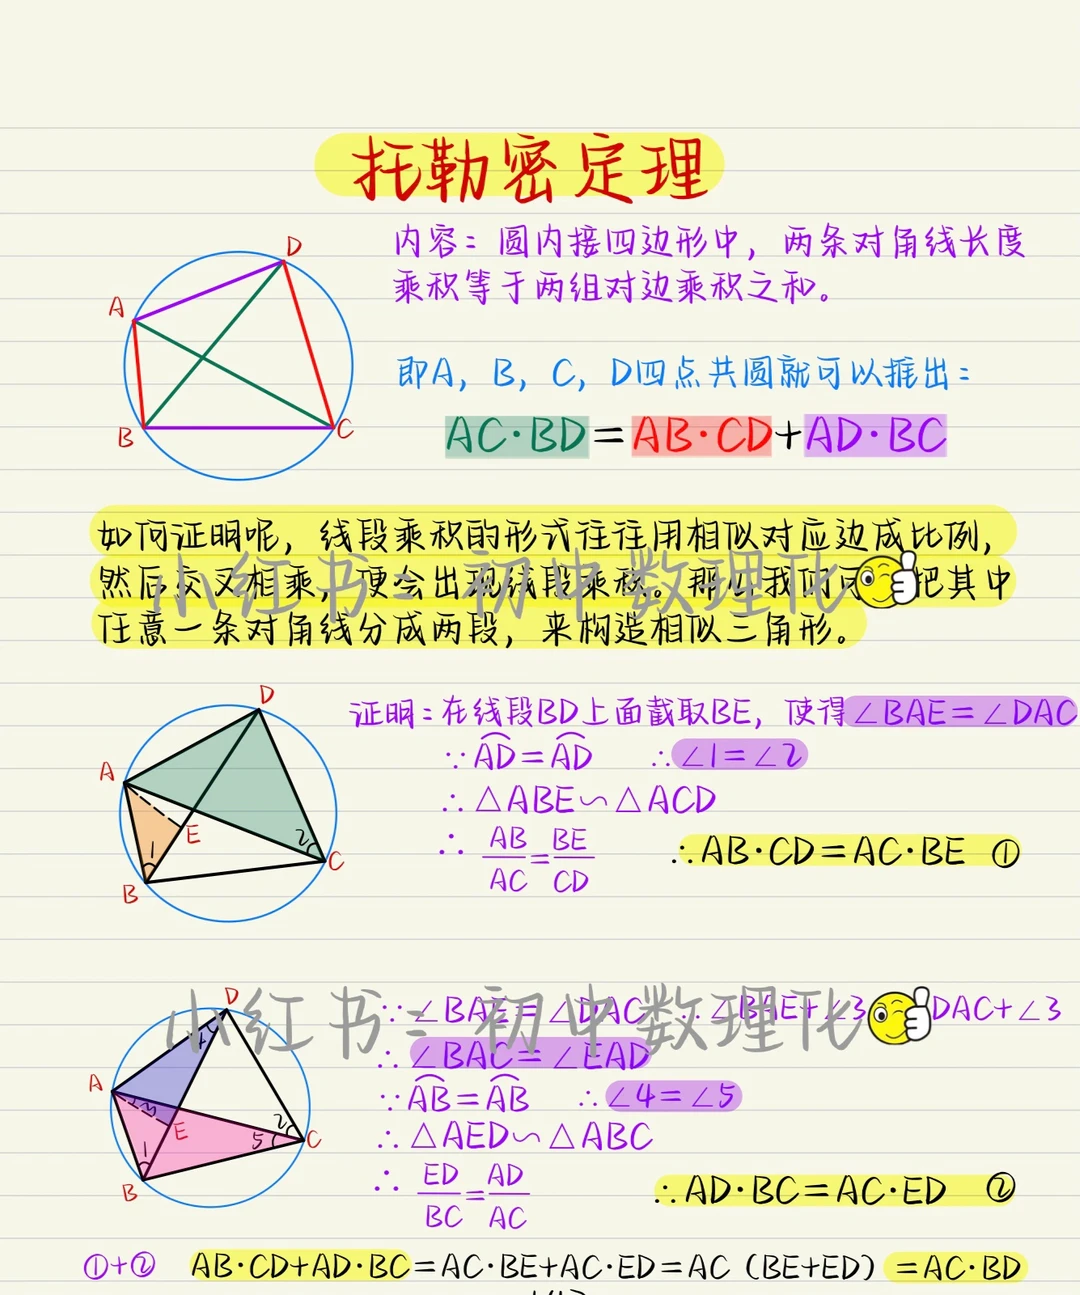 托勒密定理
内容：圆内接四边形中，两条对角线长度
乘积等于两组对边乘积之和。
即A，B，C，D四点共圆就可以推出：
AC·BD=AB·CD+AD·BC
D
A
B
C
如何证明呢，线段乘积的形式往往用相似对应边成比例，
然后交叉相乘，便会出现线段乘积。那么我们可 把其中
任意一条对角线分成两段，来构造相似三角形。
小红书：初中数理化
证明：在线段BD上面截取BE，使得∠BAE=∠DAC
∵AD=AD ∴∠1=∠2
∴△ABE∽△ACD
∴ AB/AC=BE/CD ∴AB·CD=AC·BE ①
D
A
E
1
2
B
C
∵∠BAE=∠DAC ∴∠BAE+∠3 DAC+∠3
小红书：初中数理化
∴∠BAC=∠EAD
∵AB=AB ∴∠4=∠5
∴△AED∽△ABC
∴ ED/BC=AD/AC ∴AD·BC=AC·ED ②
D
4
A
3
E
2
5
C
1
B
①+② AB·CD+AD·BC=AC·BE+AC·ED=AC（BE+ED）=AC·BD